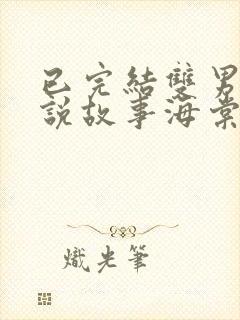 已完結雙男
說故事海棠
熾光筆